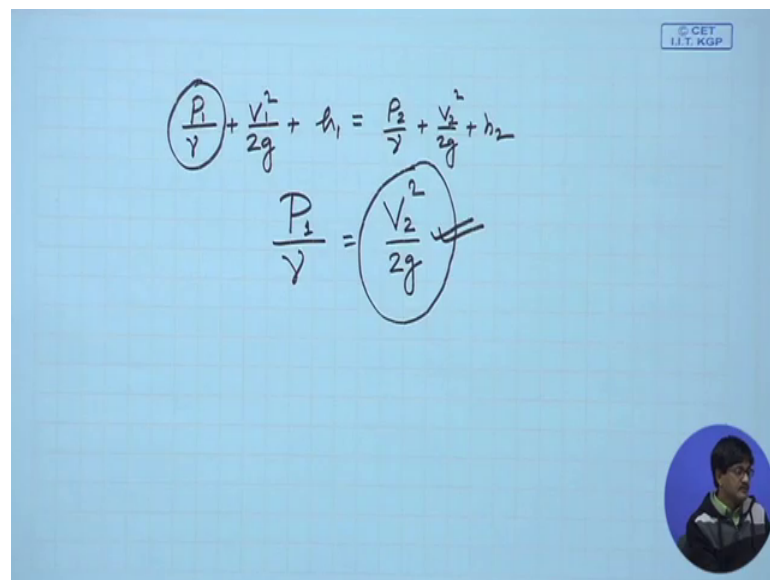 © CET
I.I.T. KGP
P₁/γ + V₁²/2g + h₁ = P₂/γ + V₂²/2g + h₂
P₁/γ = V₂²/2g